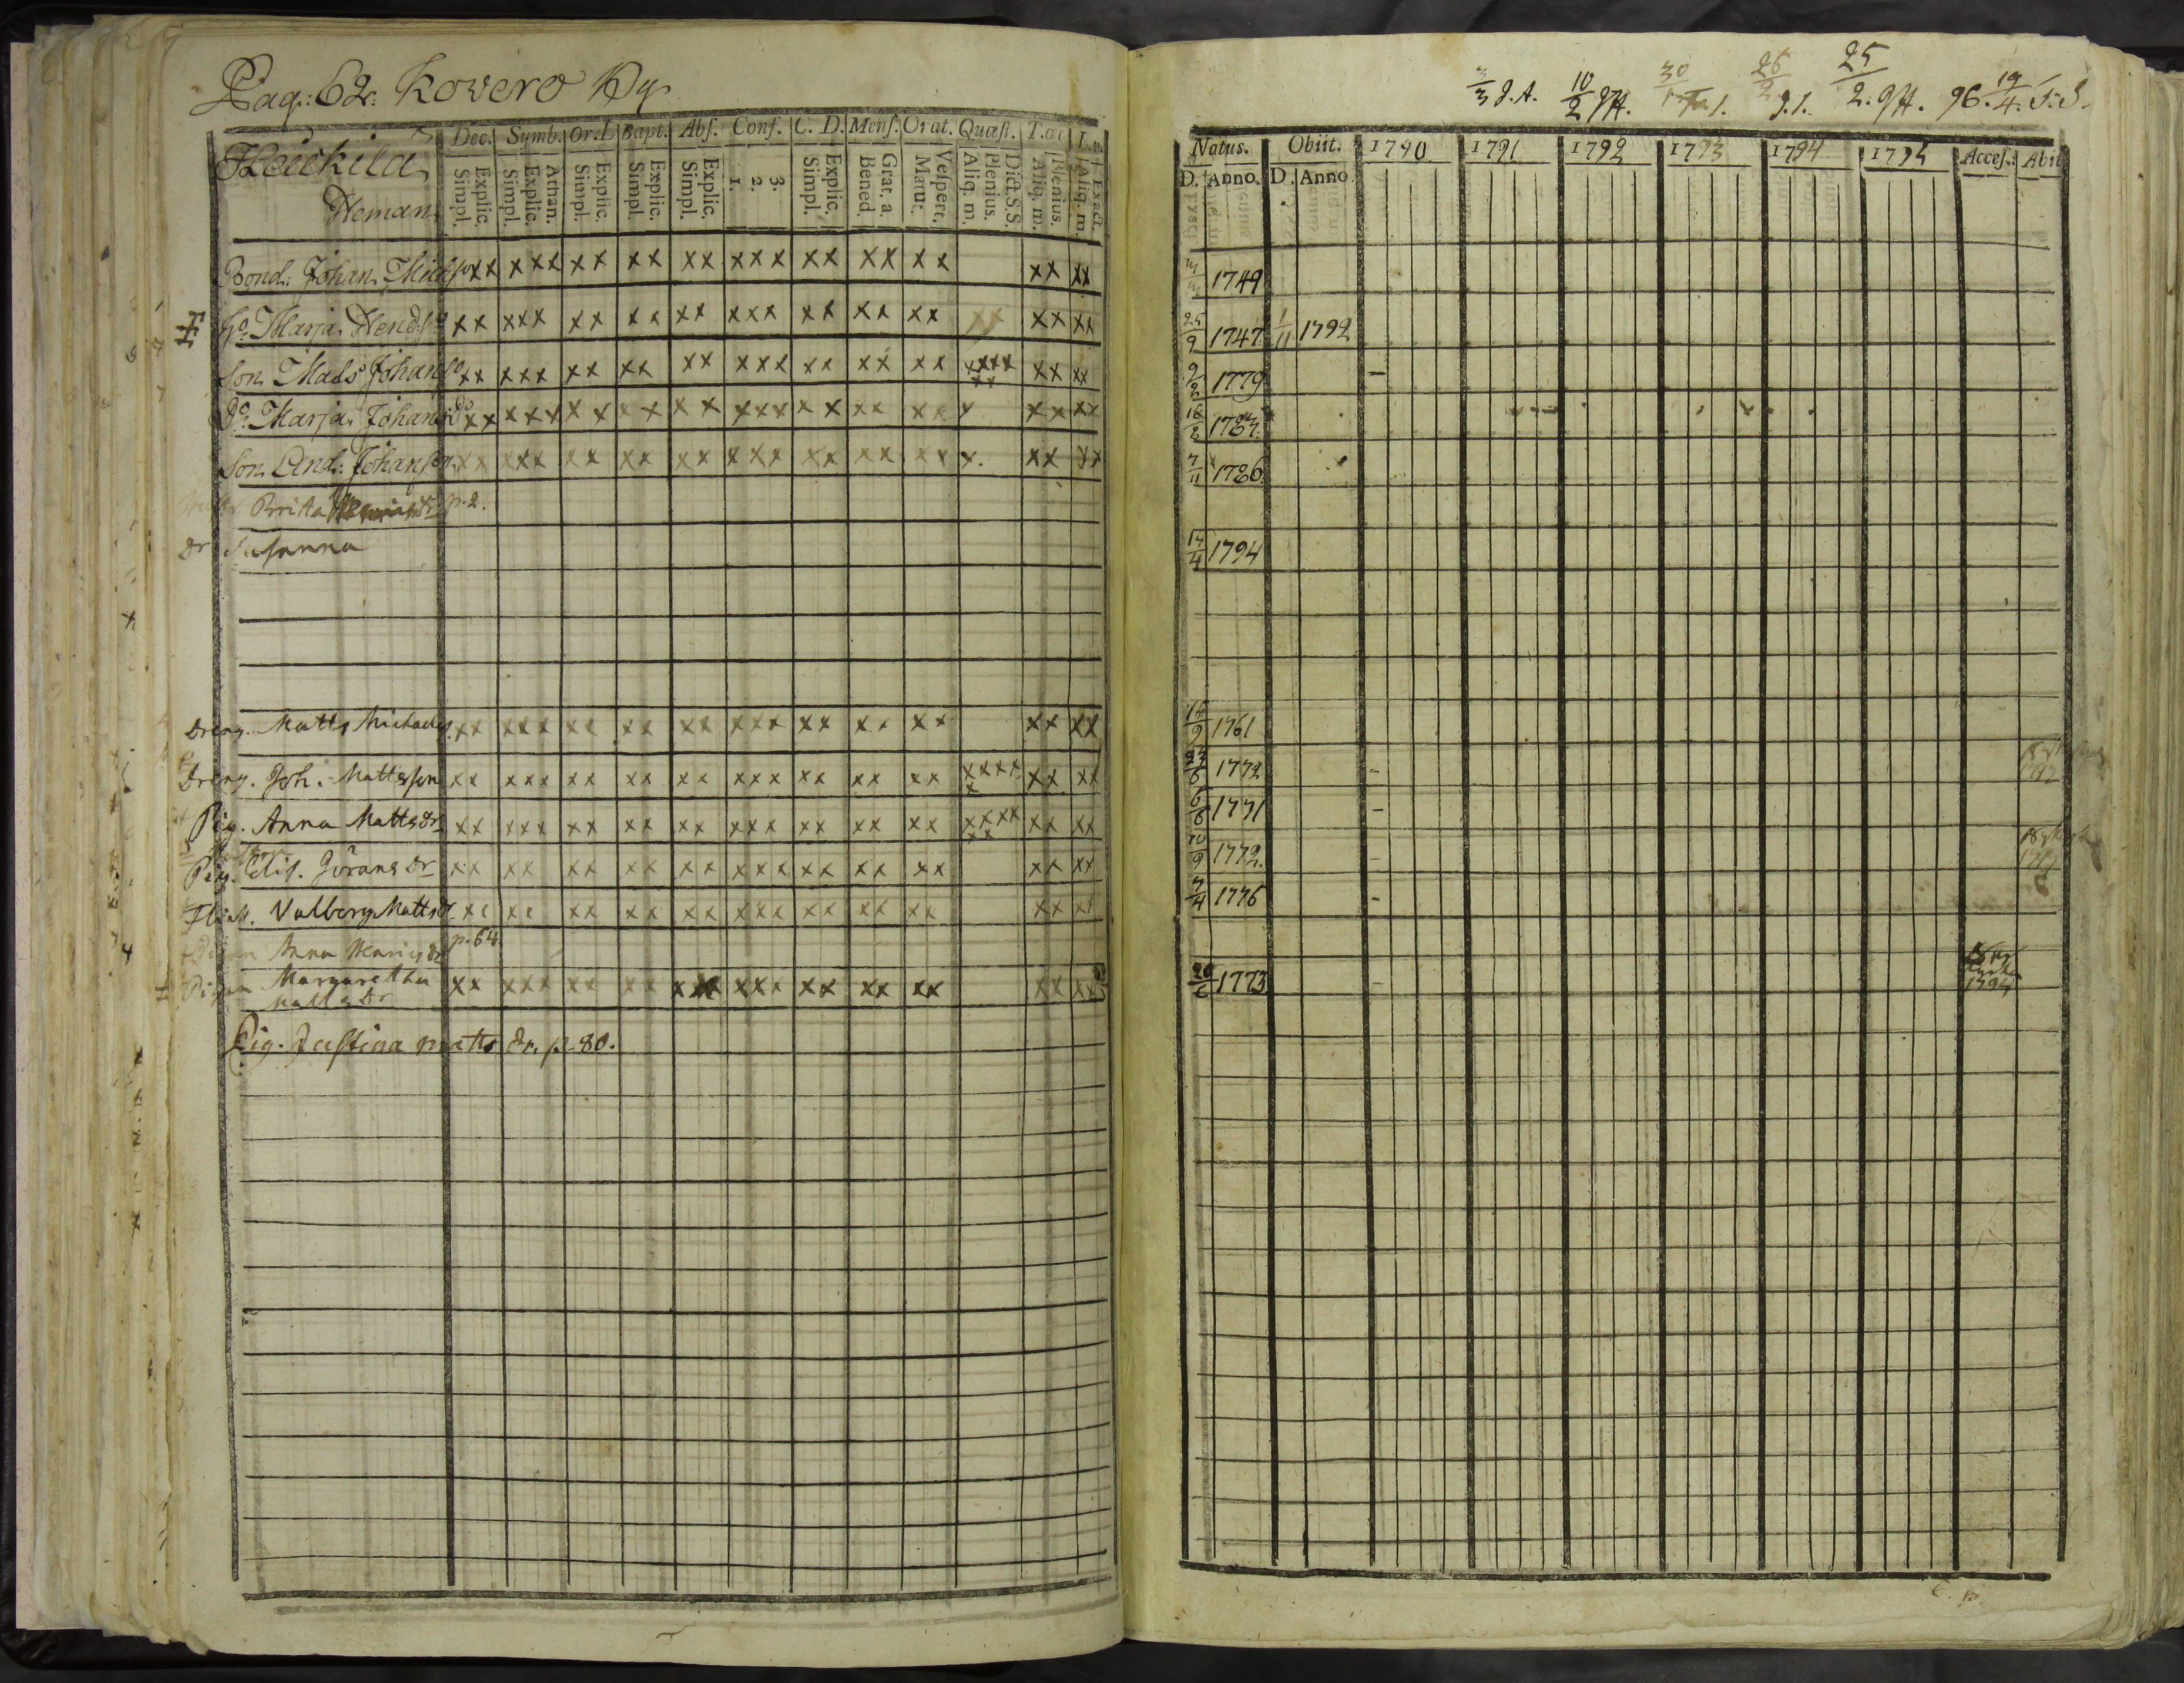 Pag: 62. Kovero By
Dec. Symb. Or. L Bapt. Abs. Conf. C. D. Mens. Orat. Quæst. T. œc
Explic. Simpl. Athan. Explic. Simpl. Explic. Simpl. Explic. Simpl. Explic. Simpl. 3. 2. 1. Explic. Simpl. Grat. a Bened. Vespert. Matut. Dict. S.S. Plenius. Aliq. m. Plenius. Aliq. m. Exact. Aliq. m.
Heickilä
Heman
Bond. Johan Michs xx xxx xx xx xx xxx xx xx xx xx xx
Ho Marja Hend: xx xxx xx xx xx xxx xx xx xx xx xx xx
Son Mats Johans xx xxx xx xx xx xxx xx xx xx xxxx xx xx xx
Do Marja Johans do xx xxx xx xx xx xxx xx xx xx x xx xx
Son And: Johanson xx xxx xx xx xx xxx xx xx xx x. xx xx
Britta p. 2.
Dr Susanna
Dreng. Matts Michaels xx xxx xx xx xx xxx xx xx xx xx xx
Dreng. Joh. Mattsson xx xxx xx xx xx xxx xx xx xx xxxx x xx xx
Pig. Anna Matts dr xx xxx xx xx xx xxx xx xx xx xxxx xx xx xx
Pig. Elis. Görans dr xx xx xx xx xx xxx xx xx xx xx xx
Valborg Matts d xx xx xx xx xx xxx xx xx xx xx xx
Pigan Anna Henrics dr p. 64.
Pigan Margaretha Matts Dr xx xxx xx xx xxx xxx xx xx xx xx xx
Pig. Justina Matts dr. p. 80.
3/3 J. A. 10/2 30/1 26/2 J. I. 25/2. 96. 19/4. J. S.
Natus. Obiit. 1790 1791 1792 1793 1794 1795 Access. Abit
D. Anno. D. Anno.
1749
25/9 1747 1/11 1792
9/2 1779 -
16/8
7/11 1786
14/4 1794
14/9 1761
1772 -
6/6 1771 -
10/9 1772. -
7/4 1776 -
20/6 1773 - 1794